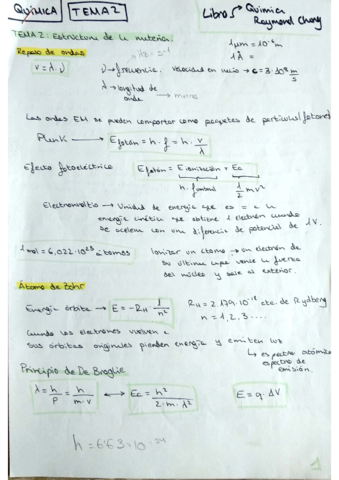 QUÍMICA TEMA 2 Libro → Química
Raymond Chang
TEMA 2: Estructura de la materia.
Repaso de ondas Hz = s⁻¹
v = λ·ν ν → frecuencia. velocidad en vacío → c = 3·10⁸ m/s
λ → longitud de onda → metros
1 μm = 10⁻⁶ m
1 Å =
Las ondas EM se pueden comportar como paquetes de partículas (fotones)
Plank → E fotón = h·f = h·v/λ
Efecto fotoeléctrico E fotón = E ionización + Ec
h·f umbral 1/2 mv²
Electronvoltio → Unidad de energía que es = a la
energía cinética que obtiene 1 electrón cuando
se acelera con una diferencia de potencial de 1V.
1 mol = 6,022·10²³ átomos Ionizar un átomo → un electrón de
su última capa vence la fuerza
del núcleo y sale al exterior.
Átomo de Bohr
Energía órbita → E = -RH · 1/n² RH = 2.179·10⁻¹⁸ cte. de Rydberg
n = 1, 2, 3 ....
Cuando los electrones vuelven a
sus órbitas originales pierden energía y emiten luz
↳ espectro atómico
espectro de
emisión.
Principio de De Broglie
λ = h/p = h/m·v ↔ Ec = h²/2·m·λ² E = q·ΔV
h = 6'63·10⁻³⁴
1